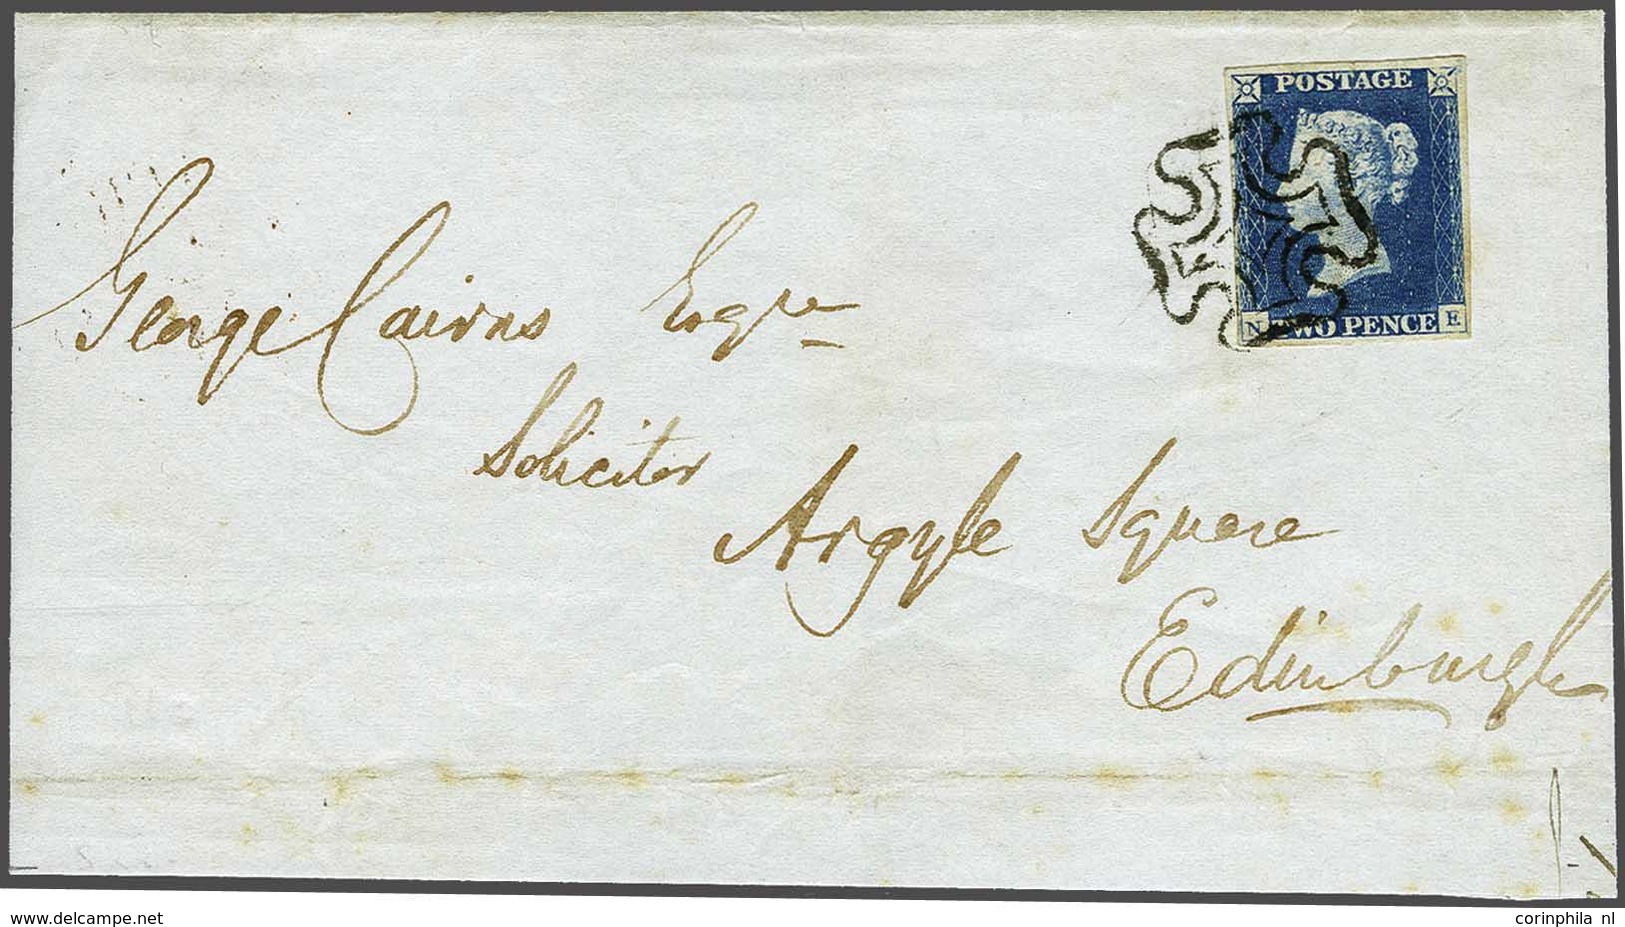 POSTAGE
N TWO PENCE E
George Cairns Esqre
Solicitor
Argyle Square
Edinburgh
www.delcampe.net
corinphila nl